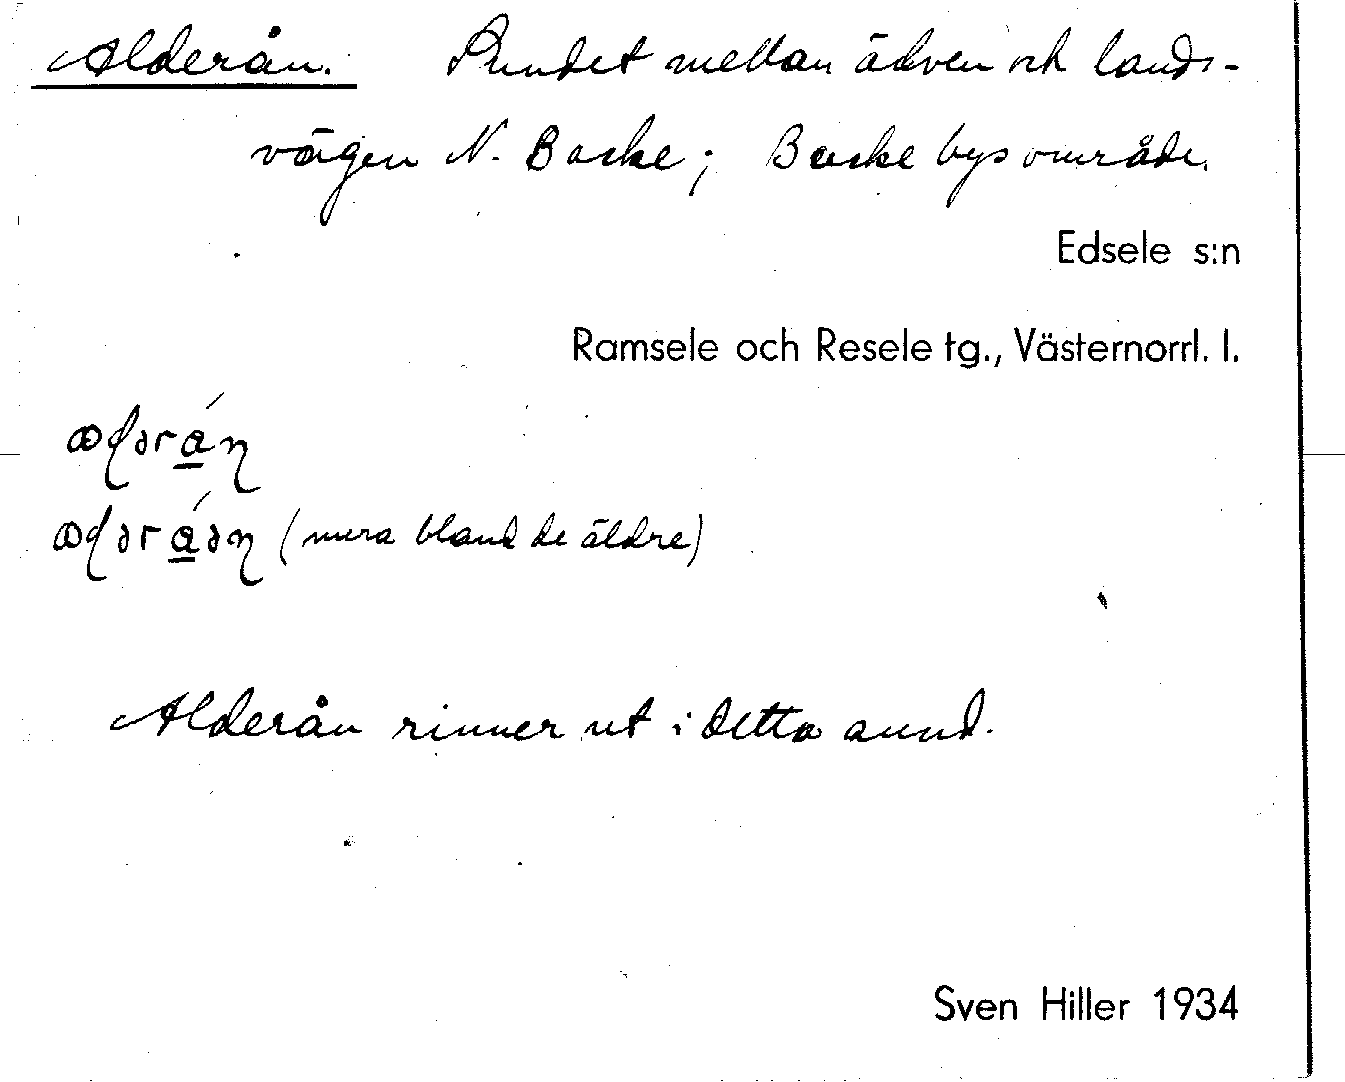 Alderån. Sundet mellan älven och lands-
vägen N. Backe; Backe bys område.
Edsele s:n
Ramsele och Resele tg., Västernorrl. l.
(mera bland de äldre)
Alderån rinner ut i detta sund.
Sven Hiller 1934